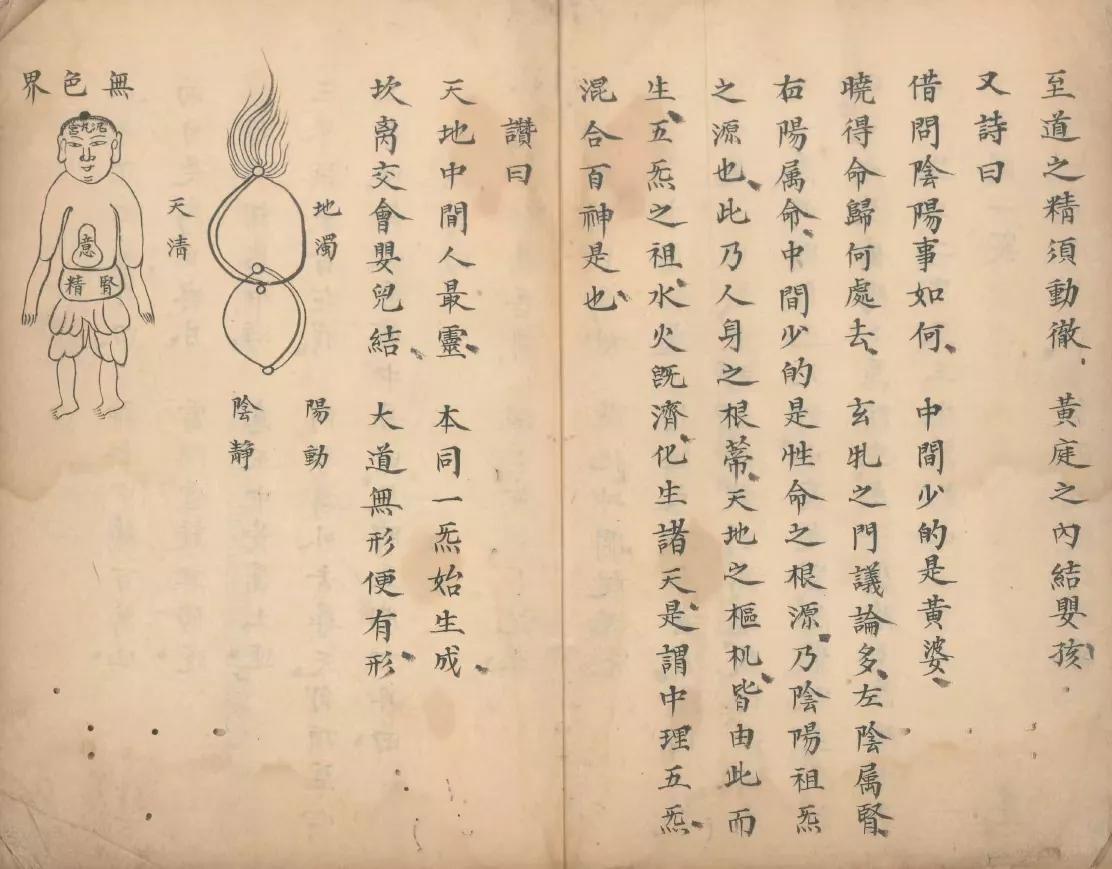 至道之精須動徹 黃庭之內結嬰孩
又詩曰
借問陰陽事如何 中間少的是黃婆
曉得命歸何處去 玄牝之門議論多左陰属腎
右陽属命中間少的是性命之根源乃陰陽祖炁
之源也此乃人身之根蒂天地之樞机皆由此而
生五炁之祖水火既濟化生諸天是謂中理五炁
混合百神是也
讚曰
天地中間人最靈 本同一炁始生成
坎离交會嬰兒結 大道無形便有形
地濁
陽動
陰静
天清
無色界
泥丸宮
意
腎精